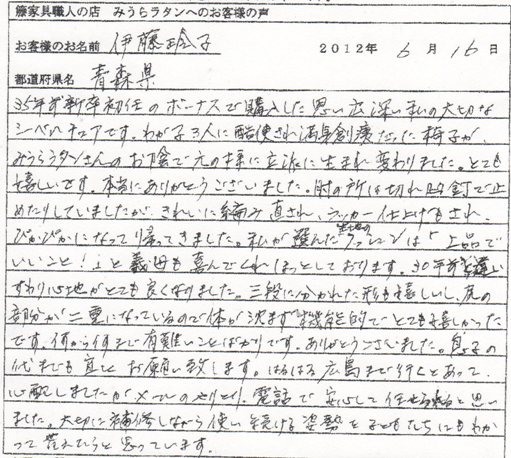 籐家具職人の店　みうらラタンへのお客様の声
お客様のお名前　伊藤玲子　2012年 6 月 16 日
都道府県名　青森県
35年前新卒初任のボーナスで購入した思い出深い私の大切な
シーベルチェアです。わが子3人に酷使され満身創痍だった椅子が、
みうらラタンさんのお陰で元の様に立派に生まれ変わりました。とても
嬉しいです。本当にありがとうございました。肘の所は切れ 釘で止
めたりしていましたが、きれいに編み直され、ラッカー仕上げもされ、
ぴかぴかになって帰ってきました。私が選んだ生地のクッションは「上品で
いいこと!」と義母も喜んでくれほっとしております。30年前と違い
すわり心地がとても良くなりました。三段に分かれた形も嬉しいし、尻の
部分が二重になっているので体が沈まず機能的で、とても嬉しかった
です。何から何まで有難いことばかりです。ありがとうございました。息子の
代までも宜しくお願い致します。はるばる広島まで行くとあって、
心配しましたがメールのやりとり、電話で安心して任せられると思い
ました。大切に補修しながら使い続ける姿勢を子どもたちにもわか
って貰えたらと思っています。